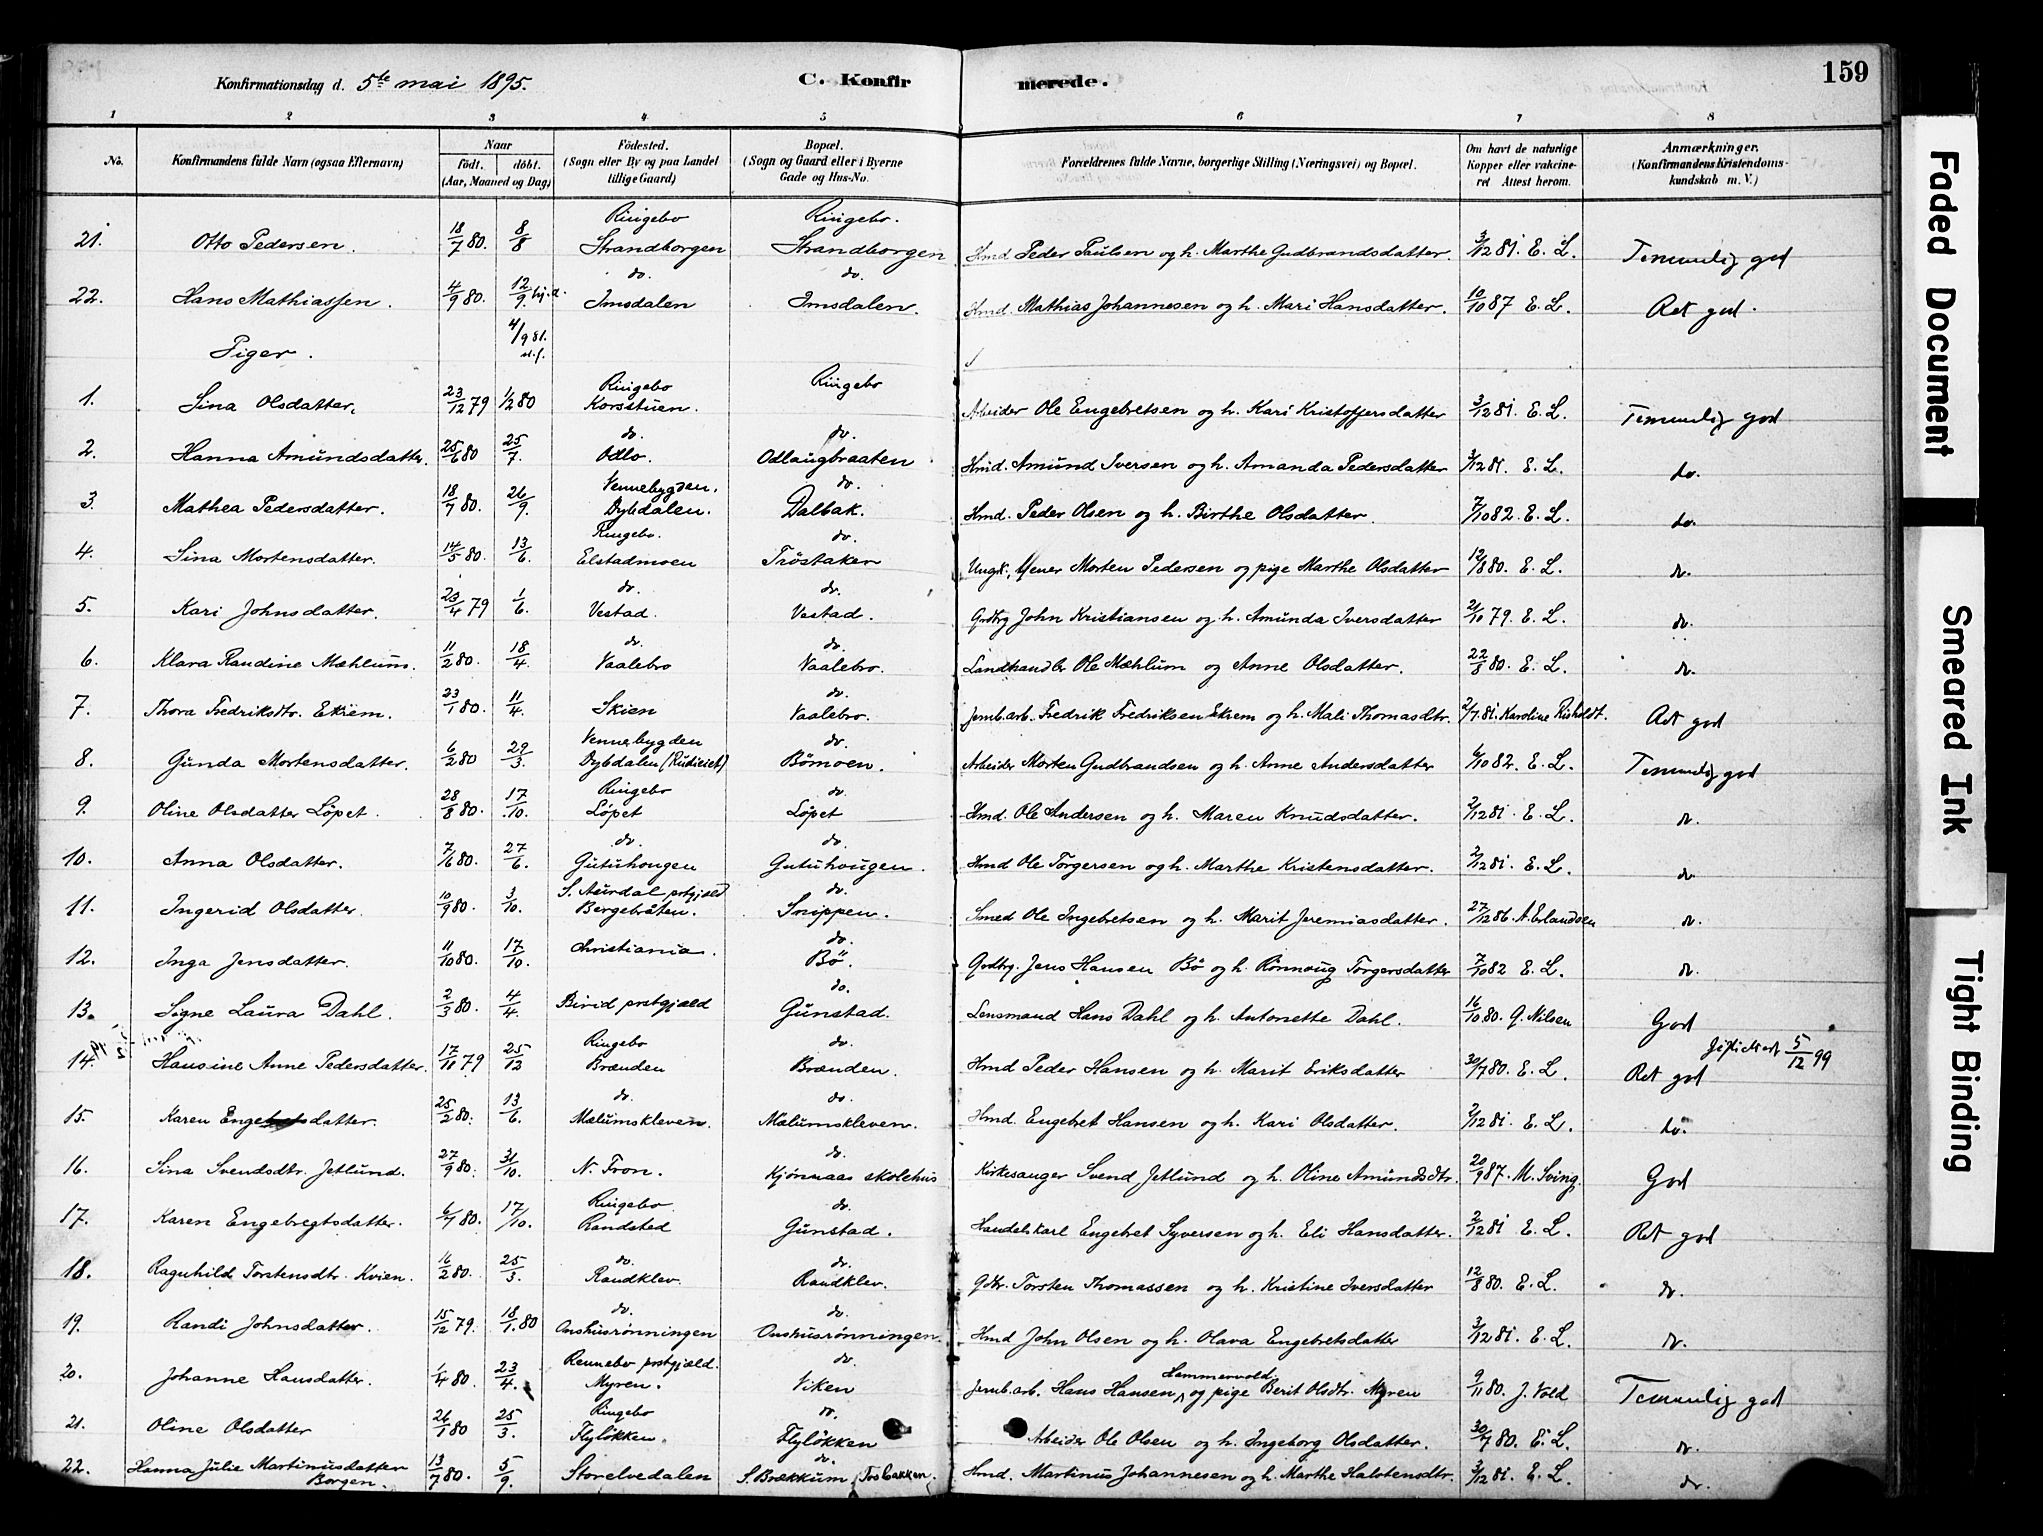 Konfirmationsdag d. 5te mai 1895. C. Konfirmerede. 159
1 2 3 4 5 6 7 8
No. Konfirmandens fulde Navn (ogsaa Efternavn) Naar födt. döbt. (Aar, Maaned og Dag) Födested. (Sogn eller By og paa Landet tillige Gaard) Bopæl. (Sogn og Gaard eller i Byerne Gade og Hus-No. Forældrenes fulde Navne, borgerlige Stilling (Næringsvei) og Bopæl. Om havt de naturlige Kopper eller vakcineret Attest herom. Anmærkninger. (Konfirmandens Kristendomskundskab m. V.)
21. Otto Pedersen. 18/7 80. 8/8 Ringebo Strandborgen Ringebo. Strandborgen Hmd. Peder Paulsen og h. Marthe Gudbrandsdatter. 3/12 81. E. L. Temmelig god
22. Hans Mathiassen. 4/9 80. 12/9 hj.d. 4/9 81. st.f. do. Imsdalen do. Imsdalen. Hmd. Mathias Johannesen og h. Mari Hansdatter. 10/10 87 E. L. Ret god.
Piger.
1. Sina Olsdatter. 23/12 79 1/2 80 Ringebo Korsstuen. Ringebo Arbeider Ole Engebretsen og h. Kari Kristoffersdatter 3/12 81. E. L. Temmelig god
2. Hanna Amundsdatter. 25/6 80 25/7. do. Odlo. do. Odlaugbraaten Hmd. Amund Iversen og h. Amanda Pedersdatter 3/12 81. E. L. do.
3. Mathea Pedersdatter. 18/7 80. 26/9. Vennebygden. Dybdalen. do. Dalbak. Hmd. Peder Olsen og h. Birthe Olsdatter. 7/10 82. E. L. do.
4. Sina Mortensdatter. 14/5 80. 13/6. Ringebo. Elstadmoen do. Tröstaker Ungk. tjener Morten Pedersen og pige Marthe Olsdatter 12/8 80. E. L. do.
5. Kari Johnsdatter. 23/4 79 1/6. do. Vestad. do. Vestad. Grdbrg John Kristiansen og h. Amunda Iversdatter 2/10 79. E. L. do.
6. Klara Randine Mæhlum. 11/2 80. 18/4. do. Vaalebro do. Vaalebro. Landhandler Ole Mæhlum og Anne Olsdatter. 22/8 80. E. L. do.
7. Thora Fredriksdtr. Ekrem. 23/1 80. 11/4. Skien do. Vaalebro. Jernb.arb. Fredrik Fredriksen Ekrem og h. Mali Thomasdtr. 2/7 81. Karoline Risholdt. Ret god
8. Gunda Mortensdatter. 6/2 80 29/3. Vennebygden Dybdalen do. Bömoen. Arbeider Morten Gudbrandsen og h. Anne Andersdatter 6/10 82. E. L. Temmelig god
9. Oline Olsdatter Löpet. 28/8 80. 17/10. Ringebo Löpet do. Löpet Hmd. Ole Andersen og h. Maren Knudsdatter. 2/12 81. E. L. do.
10. Anna Olsdatter. 7/6 80. 27/6. do. Gutuhougen do. Gutuhougen. Hmd Ole Torgersen og h. Marthe Kristensdatter. 2/12 81. E. L. do
11. Ingerid Olsdatter 10/9 80. 3/10. S. Aurdal prstgjæld Bergebråten. do. Snippen. Smed Ole Ingebretsen og h. Marit Jeremiasdatter. 27/12 86. A. Erlandsen do.
12. Inga Jensdatter. 11/10 80. 17/10. Christiania. do. Bö. Grdbrg. Jens Hansen Bö og h. Rönnoug Torgersdatter 7/10 82 E. L. do.
13. Signe Laura Dahl. 2/3 80. 4/4. Birid prstgjæld do. Gunstad. Lensmand Hans Dahl og h. Antonette Dahl. 16/10 80. G. Nilsen God
14. Hansine Anne Pedersdatter. 17/11 79 25/12 Ringebo Brænden do. Brænden. Hmd Peder Hansen og h. Marit Eriksdatter 30/7 80. E. L. Ret god 5/12 99
15. Karen Engebretsdatter. 25/2 80. 13/6. do. Mælumskleven. do. Mælumskleven. Hmd. Engebret Hansen og h. Kari Olsdatter. 2/12 81. E. L. do.
16. Sina Svendsdtr. Jetlund. 27/9 80. 31/10. N. Fron. do. Kjönnaas skolehus Kirkesanger Svend Jetlund og h. Oline Amundsdtr. 20/9 87. M. Sving. God
17. Karen Engebregtsdatter. 6/7 80. 17/10. Ringebo. Randsted do. Gunstad. Handelskarl Engebret Syversen og h. Eli Hansdatter. 2/12 81 E. L. Ret god
18. Ragnhild Torstensdtr. Kvien. 16/2 80. 25/3. do. Randklev. do. Randklev. Gdbr. Torsten Thomassen og h. Kristine Iversdatter 12/8 80. E. L. do.
19. Randi Johnsdatter. 15/12 79. 18/1. 80 do. Onshusrönningen do. Onshusrönningen. Hmd John Olsen og h. Olava Engebretsdatter 3/12 81. E. L. do.
20. Johanne Hansdatter. 1/4 80. 23/4. Rennebo prstgjæld. Myren. do. Viken Jernb.arb. Hans Hansen Hammervold, og pige Berit Olsdtr. Myren 9/11 80. J. Vold Temmelig god
21. Oline Olsdatter 26/1 80 25/3. Ringebo Flylökken. do. Flylökken Arbeider Ole Olsen og h. Ingeborg Olsdatter. 30/7 80. E. L. do.
22. Hanna Julie Martinusdatter Borgen. 13/7 80. 5/9. Storelvedalen do. S. Brækkum, Hmd. Martinus Johannesen og h. Marthe Halstensdtr. 3/12 81. E. L. do.
Faded Document
Smeared Ink
Tight Binding